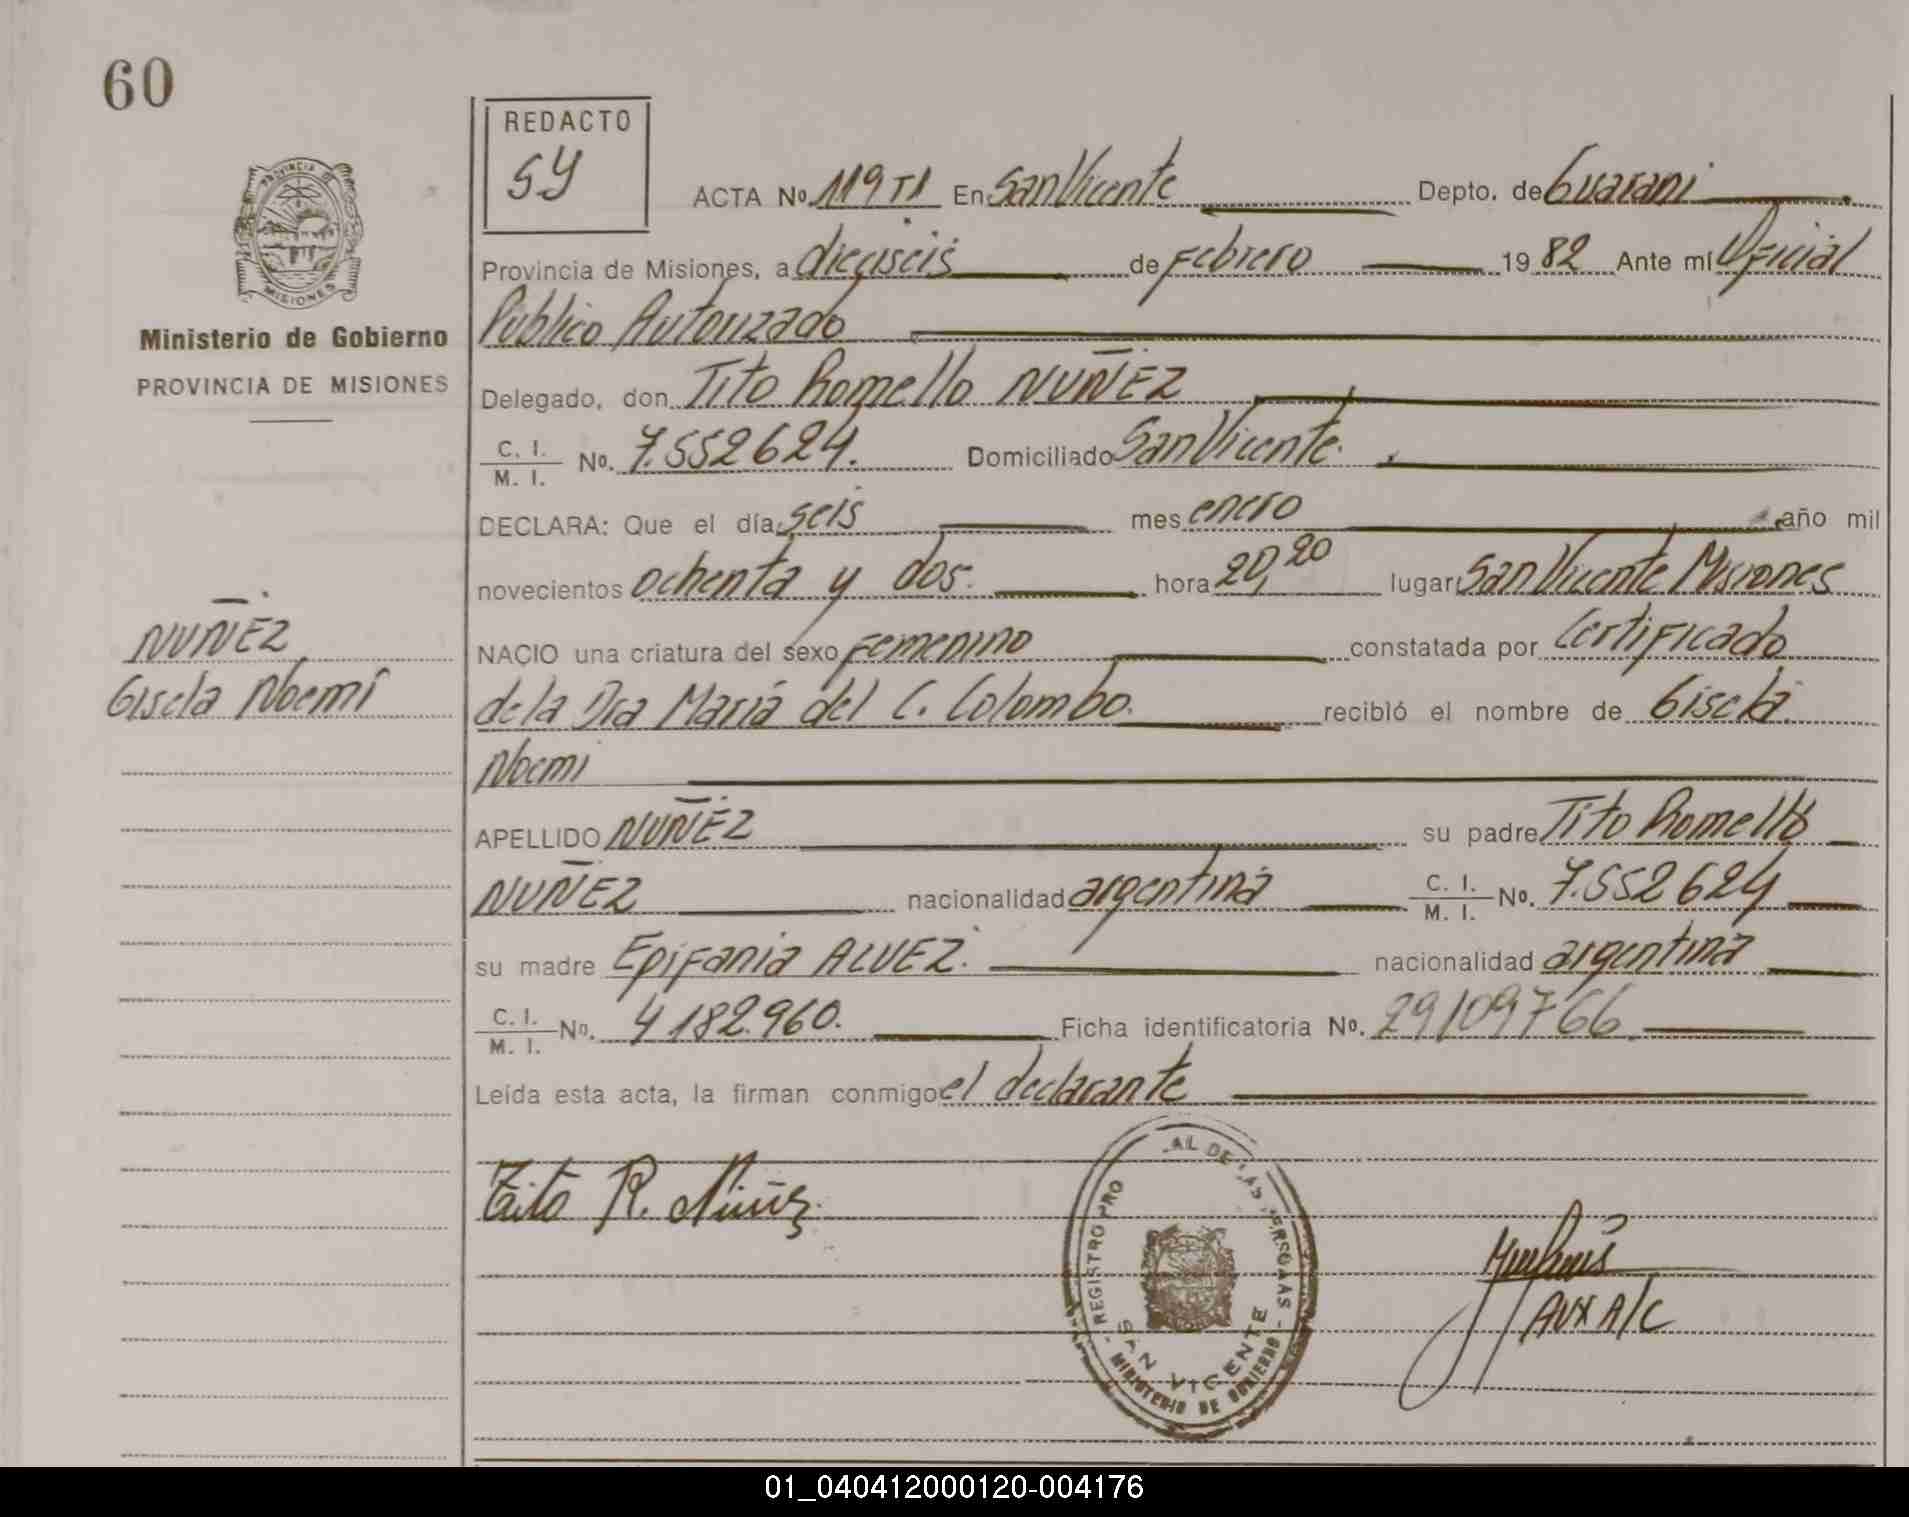 60
REDACTO
SY
PROVINCIA DE
MISIONES
Ministerio de Gobierno
PROVINCIA DE MISIONES
NUÑEZ
Gisela Noemí
ACTA No. 119 TI En San Vicente Depto. de Guaraní
Provincia de Misiones, a dieciseis de Febrero 19 82 Ante mí Oficial
Público Autorizado
Delegado, don Tito Romello NUÑEZ
C. I. / M. I. No. 7.552624. Domiciliado San Vicente.
DECLARA: Que el día seis mes enero año mil
novecientos ochenta y dos. hora 20,20 lugar San Vicente Misiones
NACIO una criatura del sexo Femenino constatada por Certificado
de la Dra María del C. Colombo. recibió el nombre de Gisela
Noemi
APELLIDO NUÑEZ su padre Tito Romello
NUÑEZ nacionalidad argentina C. I. / M. I. No. 7.552624
su madre Epifania ALVEZ. nacionalidad argentina
C. I. / M. I. No. 4182.960. Ficha identificatoria No. 29109766
Leída esta acta, la firman conmigo el declarante
Tito R. Nuñez
REGISTRO PRO AL DE LAS PERSONAS
SAN VICENTE
- MINISTERIO DE GOBIERNO -
AUX A/C
01_040412000120-004176